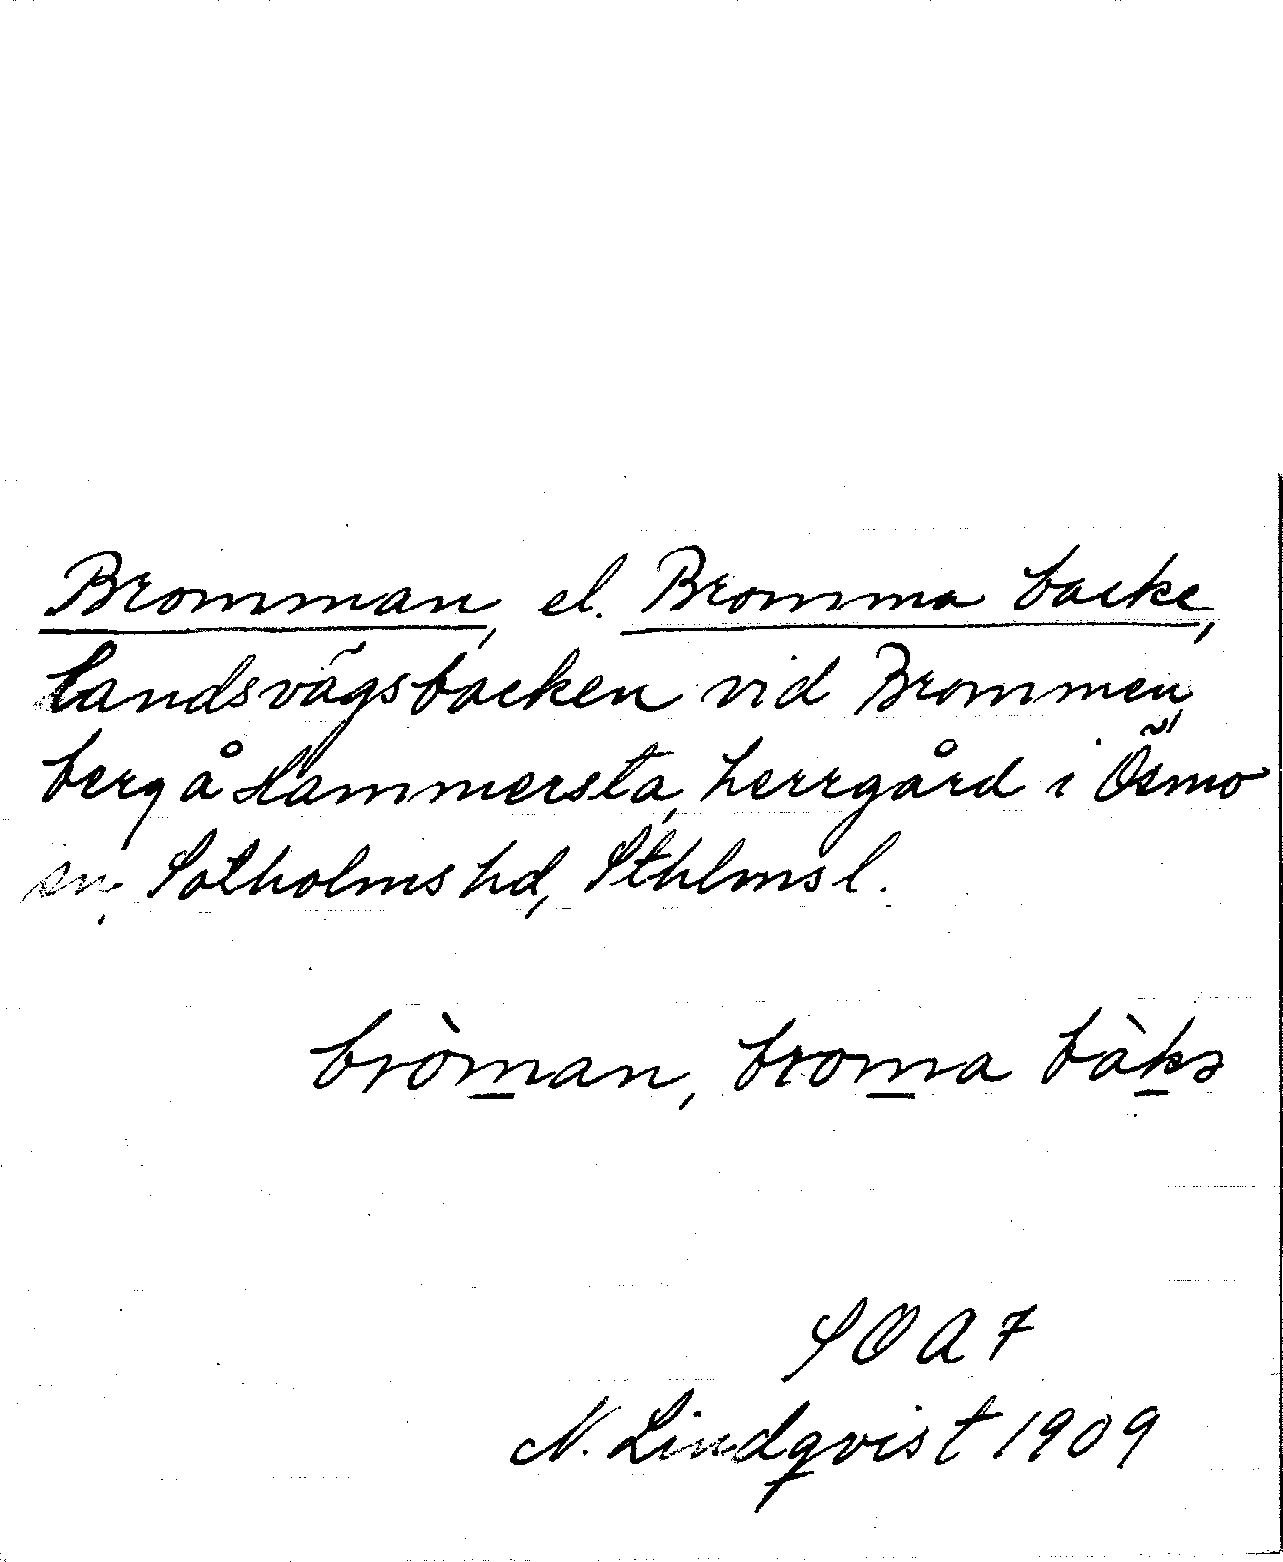 Bromman, el. Bromma backe,
landsvägsbacken vid Brommen
berg å Hammersta, herrgård i Ösmo
sn, Sotholms hd, Sthlms l.
bròman, broma bàkə
SOA 7
N. Lindqvist 1909